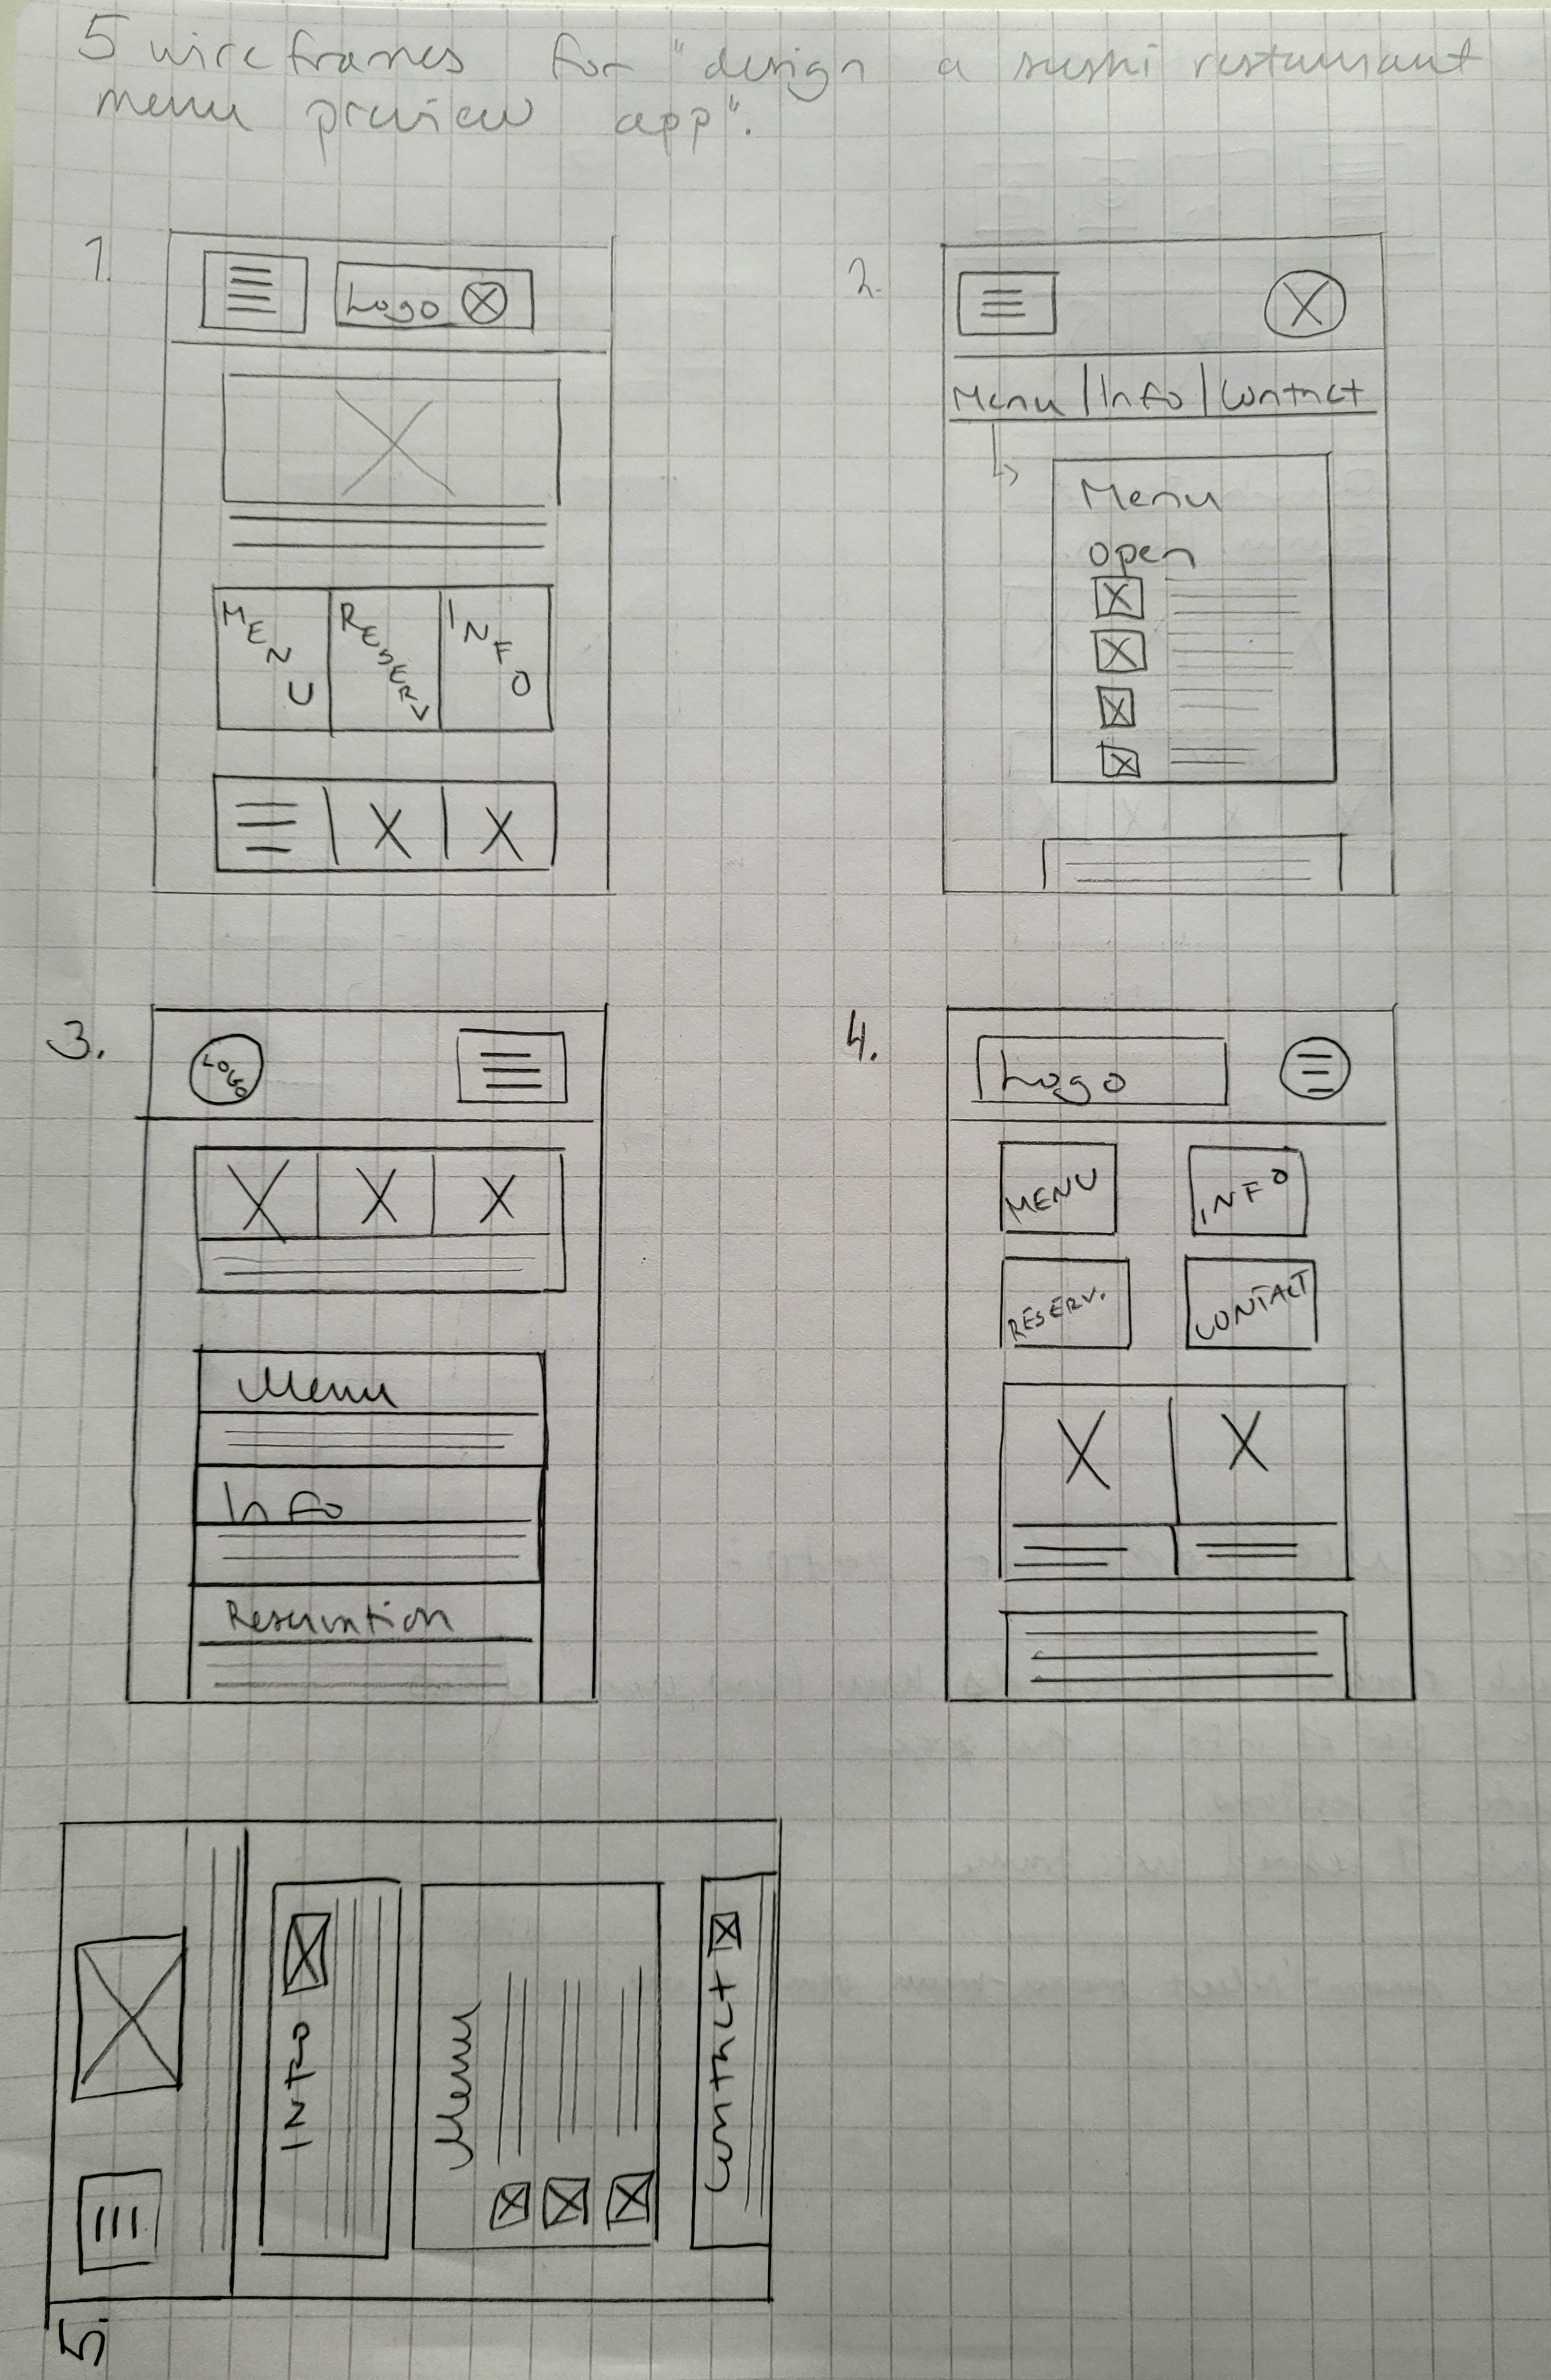 5 wireframes for "design a sushi restaurant
menu preview app".
1.
Logo
MENU
RESERV
INFO
2.
Menu | Info | Contact
Menu
open
3.
LOGO
Menu
Info
Reservation
4.
Logo
MENU
INFO
RESERV.
CONTACT
5.
INTRO
Menu
Contact